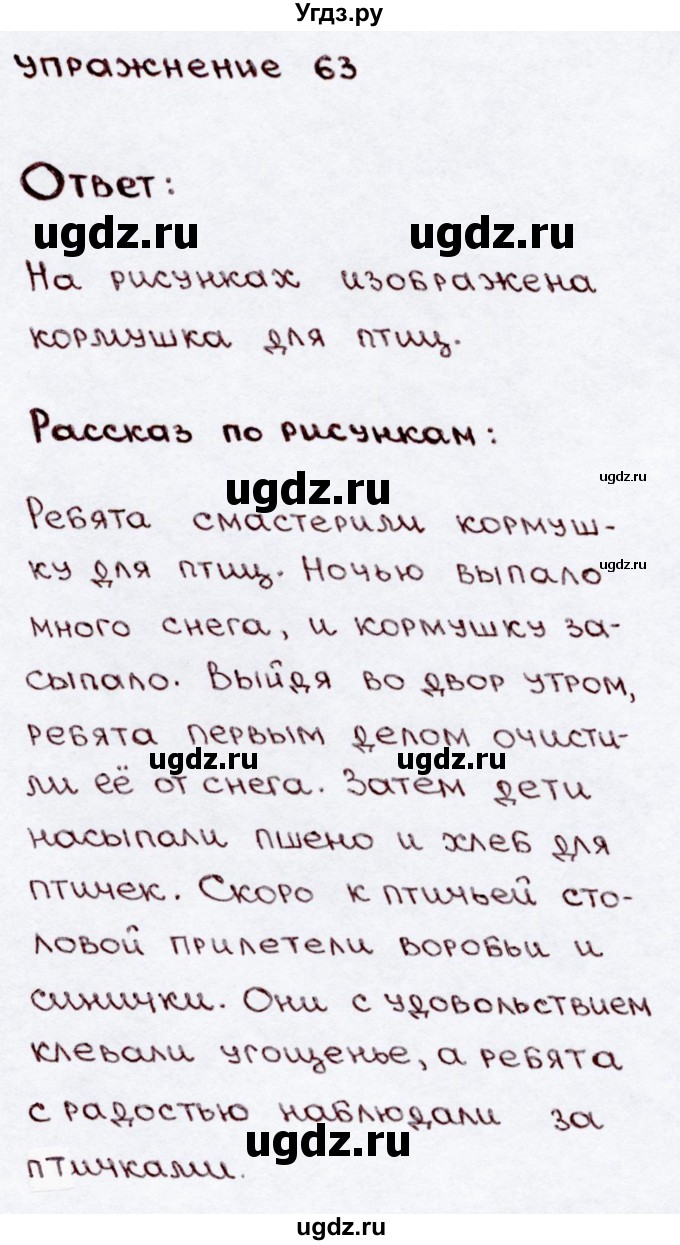 Угдз.ру
упражнение 63
Ответ:
ugdz.ru ugdz.ru
На рисунках изображена
кормушка для птиц.
Рассказ по рисункам:
ugdz.ru ugdz.ru
Ребята смастерили кормуш-
ку для птиц. Ночью выпало ugdz.ru
много снега, и кормушку за-
сыпало. Выйдя во двор утром,
ребята первым делом очисти-
ugdz.ru ugdz.ru
ли её от снега. Затем дети
насыпали пшено и хлеб для
птичек. Скоро к птичьей сто-
ловой прилетели воробьи и
синички. Они с удовольствием
клевали угощенье, а ребята
с радостью наблюдали за
ugdz.ru
птичками.
ugdz.ru